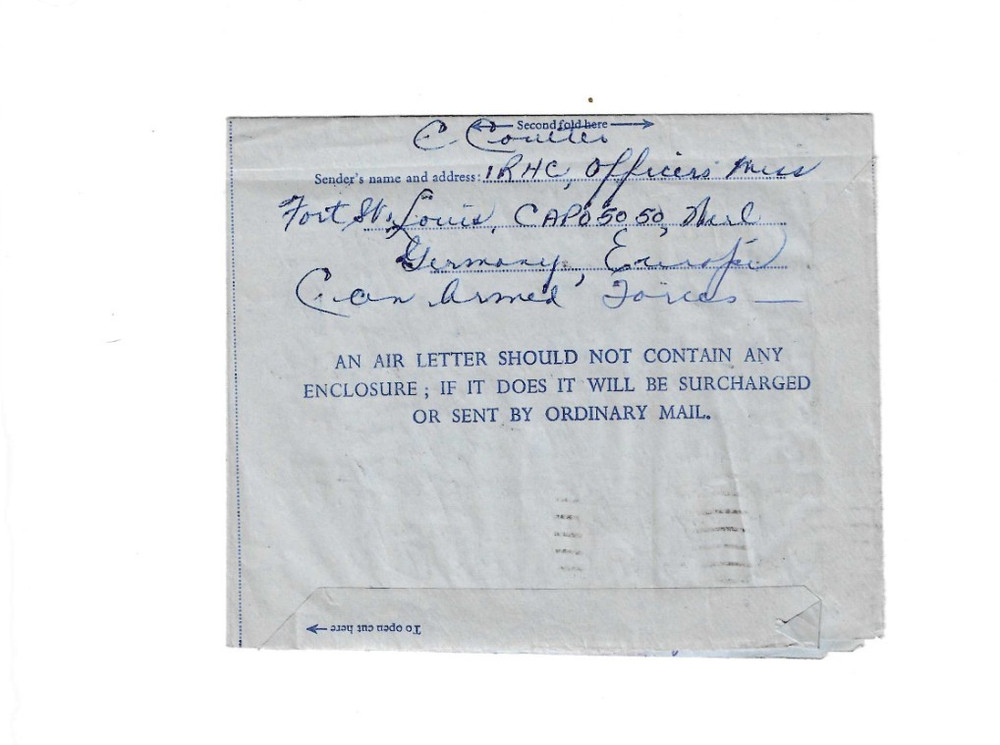 ← Second fold here →
C Coulter
Sender's name and address: 1RHC, Officers Mess
Fort St. Louis, CAPO 5050,
Germany, Europe
Can Armed Forces —
AN AIR LETTER SHOULD NOT CONTAIN ANY
ENCLOSURE ; IF IT DOES IT WILL BE SURCHARGED
OR SENT BY ORDINARY MAIL.
To open cut here →